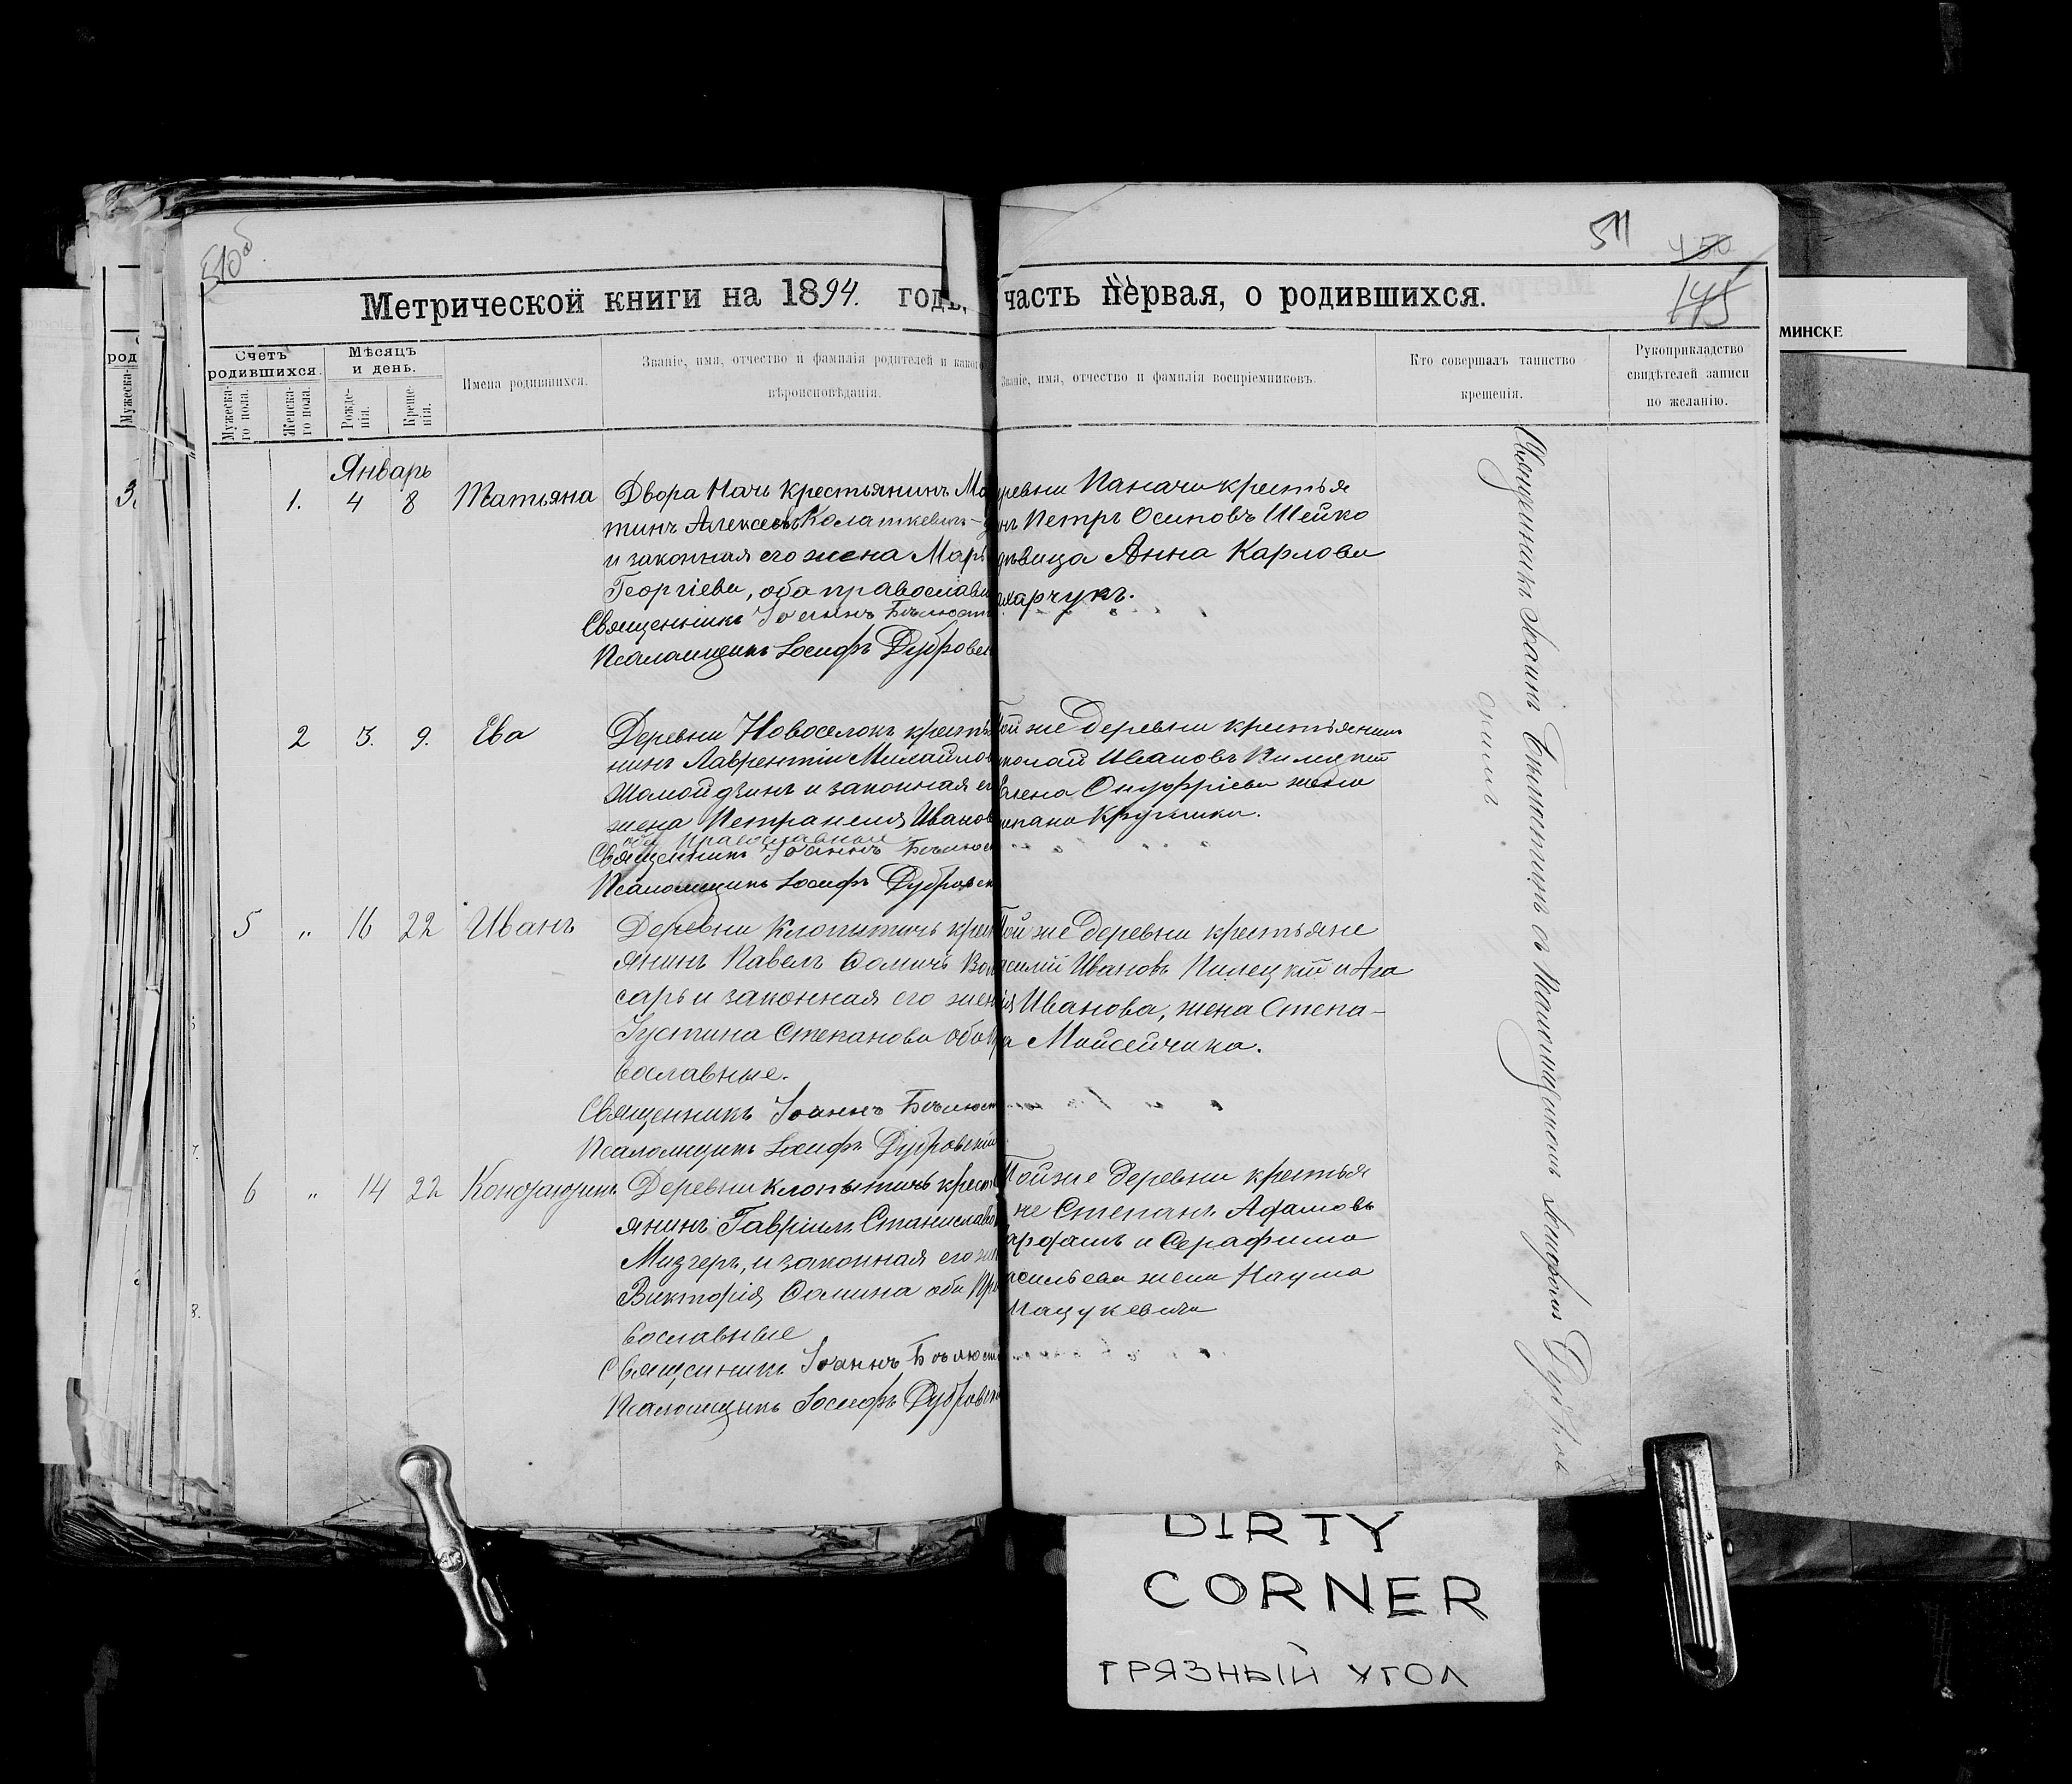 510об
511
450
145
Метрической книги на 1894. годъ, часть первая, о родившихся.
МИНСКЕ
род
Мужеска-
Счетъ родившихся.
Мужеска-го пола.
Женска-го пола.
Мѣсяцъ и день.
Рожде-нія.
Креще-нія.
Имена родившихся.
Званіе, имя, отчество и фамилія родителей и какого
вѣроисповѣданія.
Званіе, имя, отчество и фамилія воспріемниковъ.
Кто совершалъ таинство
крещенія.
Рукоприкладство
свидѣтелей записи
по желанію.
Январь
1. 4 8 Татьяна
Двора Начь крестьянинъ Ма
тинъ Алексеевъ Колаткевичъ
и законная его жена Марі
Георгіева, оба православн
Священникъ Іоаннъ
Псаломщикъ Іосифъ Дубровск
ревни Паначи крестья
нъ Петръ Осиповъ Шейко
дѣвица Анна Карлова
харчукъ.
2 3. 9. Ева
Деревни Новоселокъ кресть
нинъ Лаврентій Михайлов
Жамойдзинъ и законная е
жена Петранеля Иванов
оба православные
Священникъ Іоаннъ
Псаломщикъ Іосифъ Дубровск
ой же деревни крестьянинъ
колай Ивановъ Пилецкій
Елена Онуфріева жена
епана Кругляка.
5 „ 16 22 Иванъ
Деревни Клопытичъ крес
янинъ Павелъ Ѳомичъ
сарь и законная его жен
Іустина Степанова оба Пра
вославные.
Священникъ Іоаннъ
Псаломщикъ Іосифъ Дубровскій
ой же деревни крестьяне
асилій Ивановъ Пилецкій и Ага
ія Иванова, жена Степа-
на Мойсейчика.
6 „ 14 22
Деревни Клопытичъ крест
янинъ Гавріилъ Станиславов
Мизгеръ, и законная его же
Викторія Ѳомина оба Пра
вославные
Священникъ Іоаннъ
Псаломщикъ Іосифъ Дубровск
Той же деревни крестья
не Степанъ Адамовъ
ардашъ и Серафима
асильева жена Наума
Мацукевича
Священникъ Іоаннъ съ Псаломщикомъ Іосифомъ
скимъ
DIRTY
CORNER
ГРЯЗНЫЙ УГОЛ